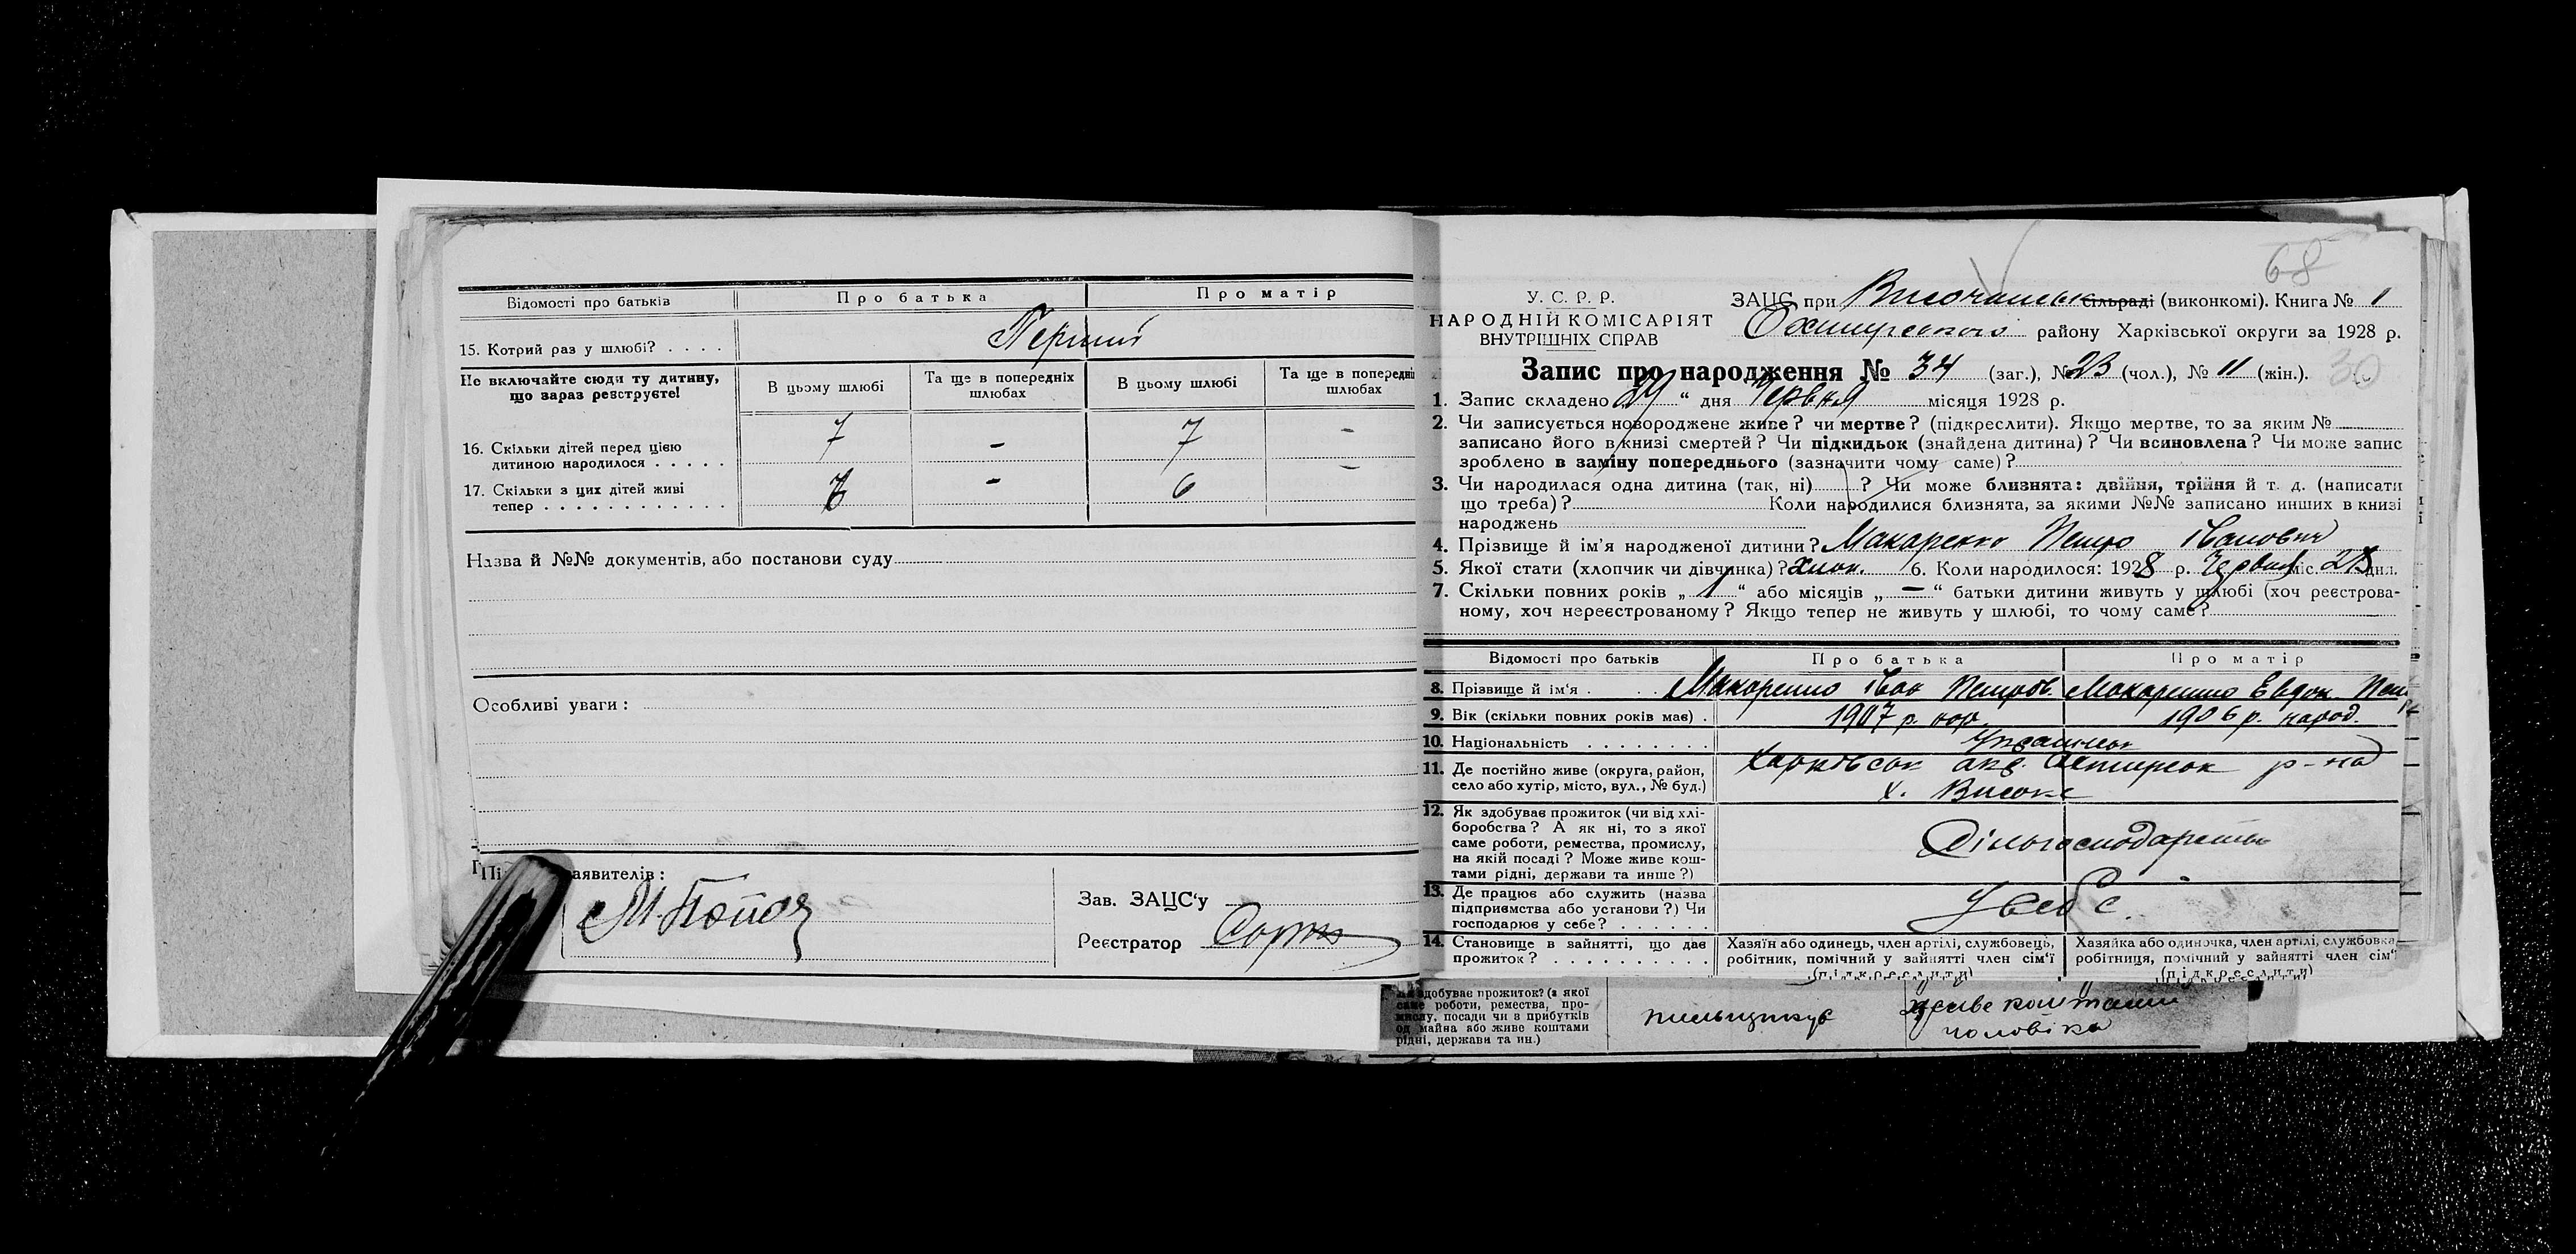 Відомості про батьків
Про батька
Про матір
15. Котрий раз у шлюбі? . . . .
Перший
Не включайте сюди ту дитину,
що зараз реєструєте!
В цьому шлюбі
Та ще в попередніх
шлюбах
В цьому шлюбі
Та ще в попередні
шлюбах
16. Скільки дітей перед цією
дитиною народилося . . . . .
7 - 7 -
17. Скільки з цих дітей живі
тепер . . . . . . . . . . . .
6 - 6 -
Назва й №№ документів, або постанови суду
Особливі уваги :
аявителів :
Зав. ЗАЦС'у
Реєстратор
68
У. С. Р. Р.
НАРОДНІЙ КОМІСАРІЯТ
ВНУТРІШНІХ СПРАВ
ЗАЦС при Височанськ сільраді (виконкомі). Книга № 1
району Харківської округи за 1928 р.
Запис про народження № 34 (заг.), № 23 (чол.), № 11 (жін.). 30
1. Запис складено 29 “ дня Червня місяця 1928 р.
2. Чи записується новороджене живе? чи мертве? (підкреслити). Якщо мертве, то за яким №
записано його в книзі смертей? Чи підкидьок (знайдена дитина)? Чи всиновлена? Чи може запис
зроблено в заміну попереднього (зазначити чому саме)?
3. Чи народилася одна дитина (так, ні) ? Чи може близнята: двійня, трійня й т. д. (написати
що треба)? Коли народилися близнята, за якими №№ записано инших в книзі
народжень
4. Прізвище й ім'я народженої дитини? Макаренко Петро Іванович
5. Якої стати (хлопчик чи дівчинка)? хлоп. 6. Коли народилося: 1928 р. Червня міс. 28 дня.
7. Скільки повних років „ 1 “ або місяців „ — “ батьки дитини живуть у шлюбі (хоч реєстрова-
ному, хоч нереєстрованому? Якщо тепер не живуть у шлюбі, то чому саме?
Відомості про батьків
Про батька
Про матір
8. Прізвище й ім'я . . . Макаренко Іван Петров. Макаренко Евдок. Пет
9. Вік (скільки повних років має) . 1907 р. нар. 1906 р. народ.
10. Національність . . . . . . . . Українськ
11. Де постійно живе (округа, район,
село або хутір, місто, вул., № буд.)
Харківськ окр. Охтирськ р-на
х. Високе
12. Як здобуває прожиток (чи від хлі-
боробства? А як ні, то з якої
саме роботи, ремества, промислу,
на якій посаді? Може живе кош-
тами рідні, держави та инше?)
13. Де працює або служить (назва
підприємства або установи?) Чи
господарює у себе? . . . . . .
У себе.
14. Становище в зайнятті, що дає
прожиток? . . . . . . . . . .
Хазяїн або одинець, член артілі, службовець,
робітник, помічний у зайнятті член сім'ї
(підкреслити)
Хазяйка або одиночка, член артілі, службовка,
робітниця, помічний у зайнятті член сім'ї
(підкреслити)
здобуває прожиток? (з якої
саме роботи, ремества, про-
мислу, посади чи з прибутків
од майна або живе коштами
рідні, держави та ин.)
живе коштами
чоловіка